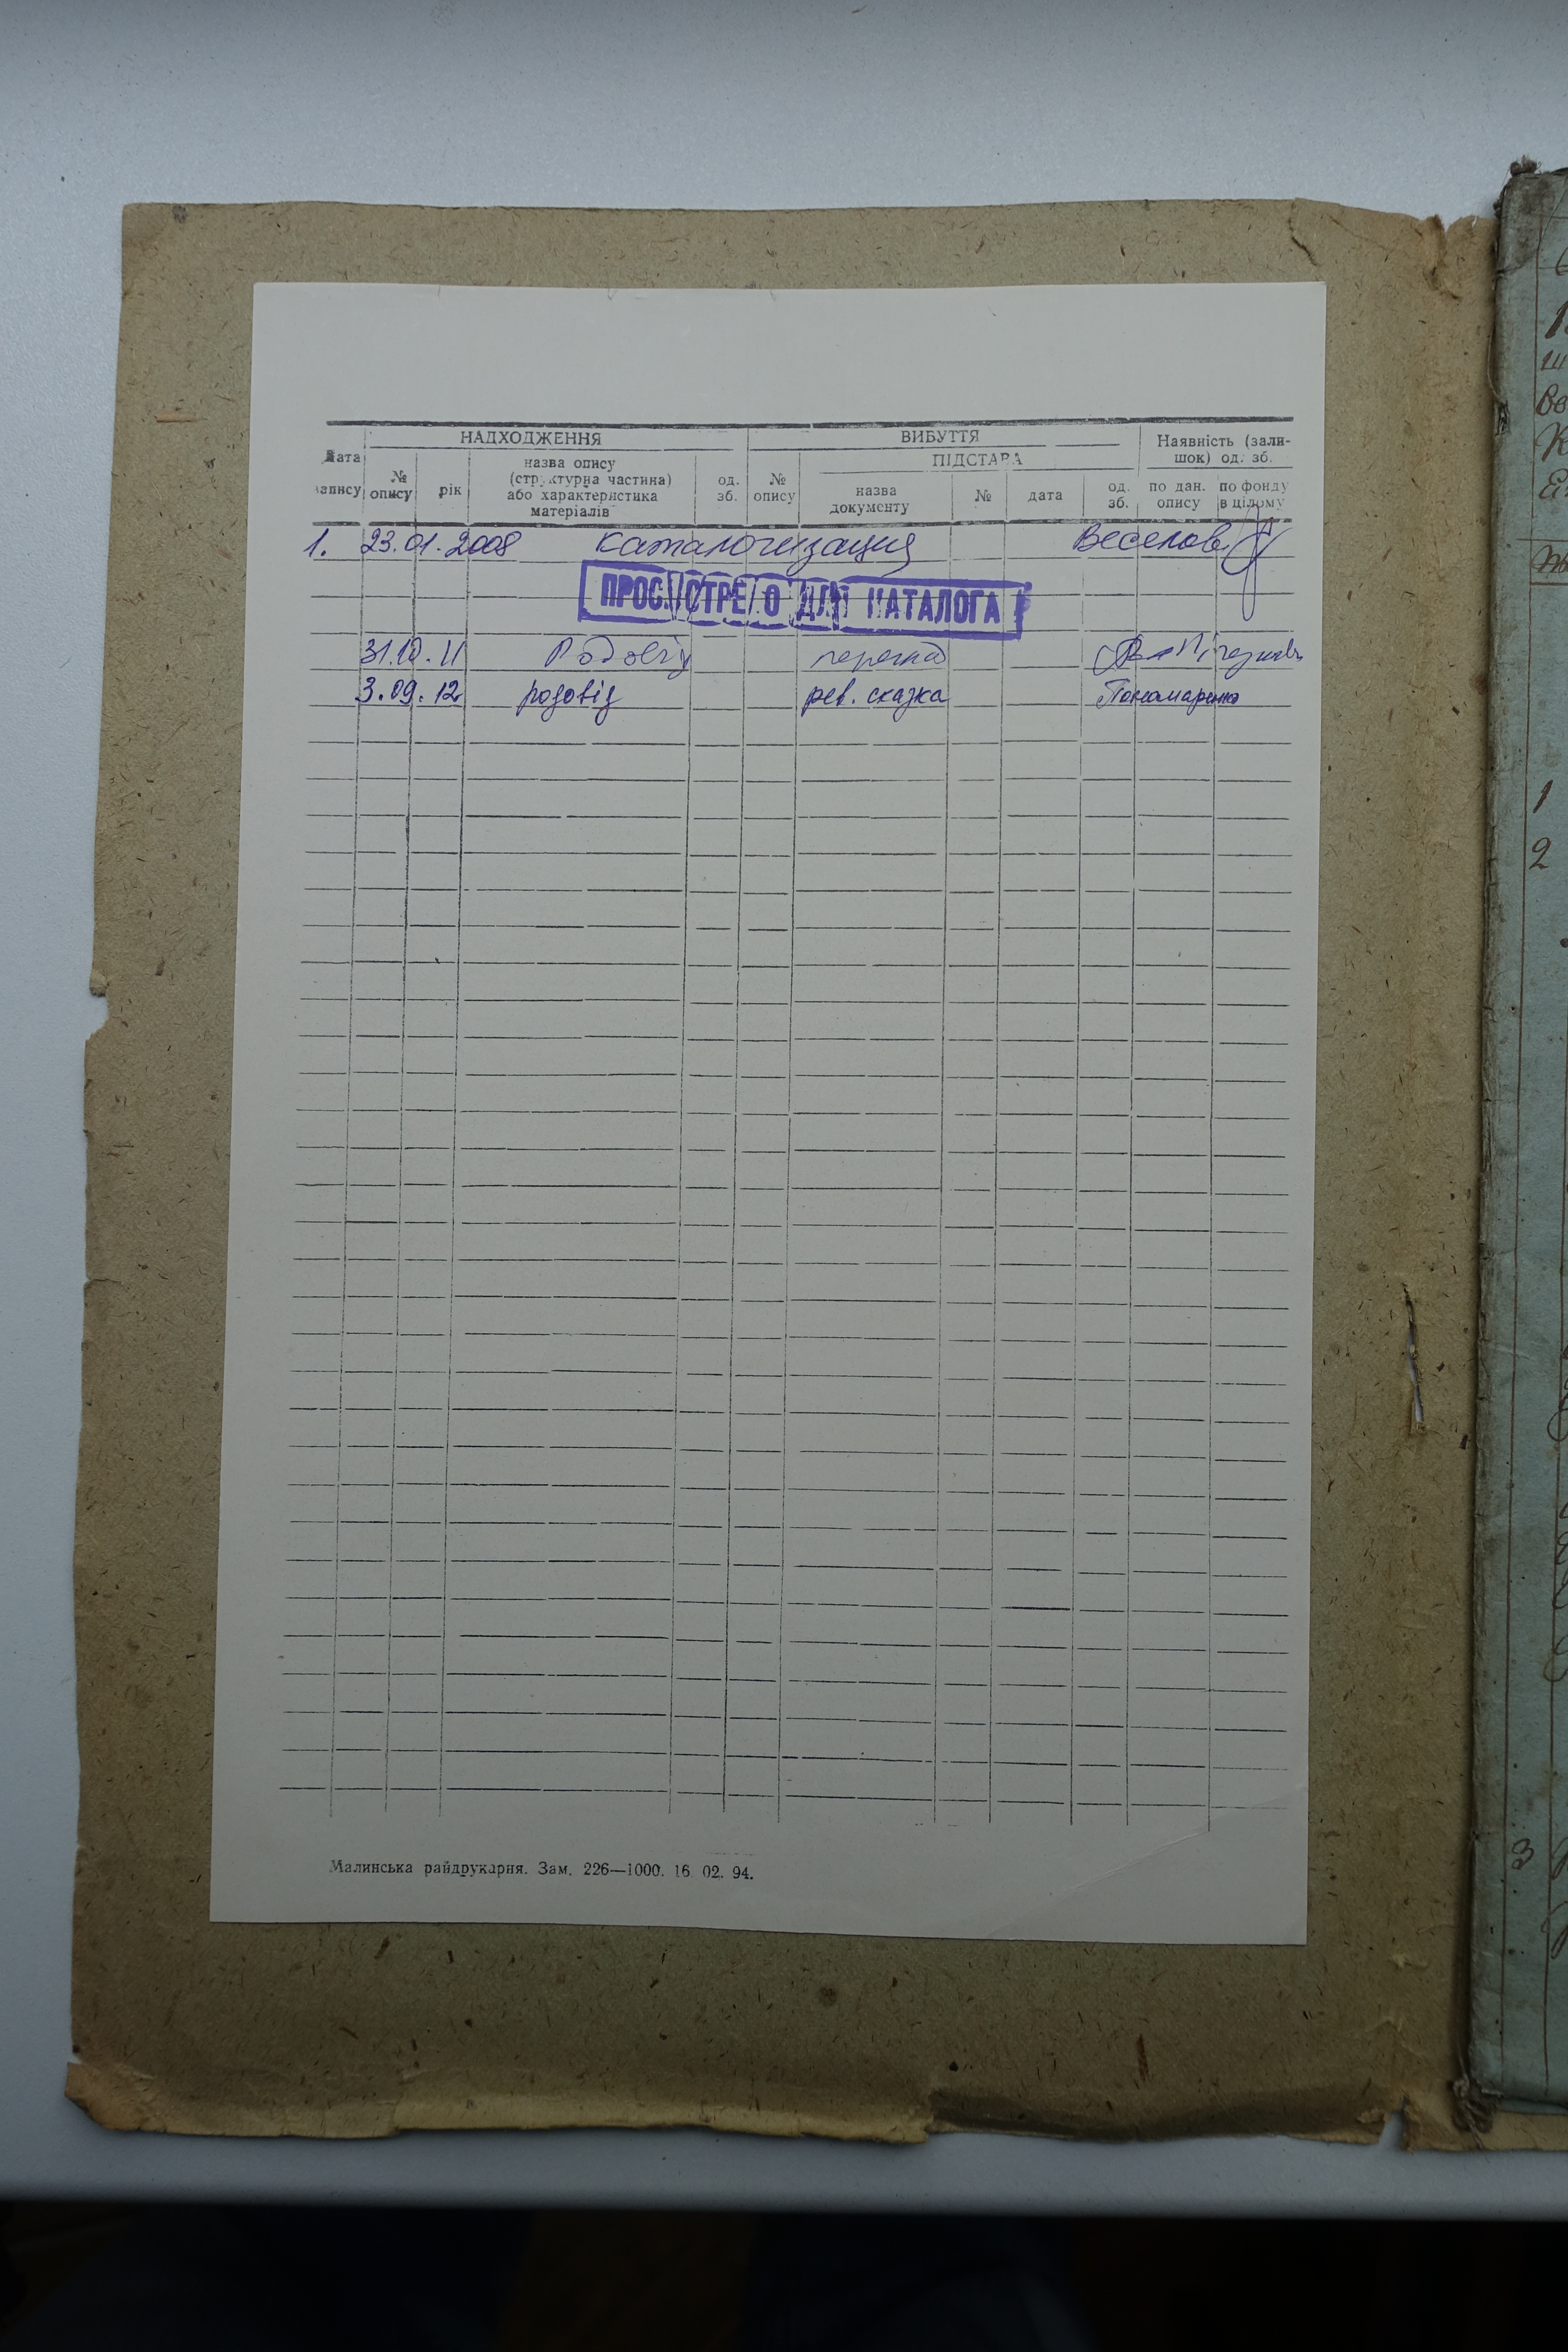 НАДХОДЖЕННЯ ВИБУТТЯ Наявність (зали-
шок) од. зб.
Дата запису № опису рік назва опису
(структурна частина)
або характеристика
матеріалів од. зб. № опису ПІДСТАВА
назва
документу № дата од. зб. по дан. опису по фонду в цілому
1. 23.01.2008 каталогизация Веселов
ПРОСМОТРЕНО ДЛЯ КАТАЛОГА
31.10.11 Родовід
3.09.12 родовід рев. сказка Пономаренко
Малинська райдрукарня. Зам. 226—1000. 16. 02. 94.
1
2
3